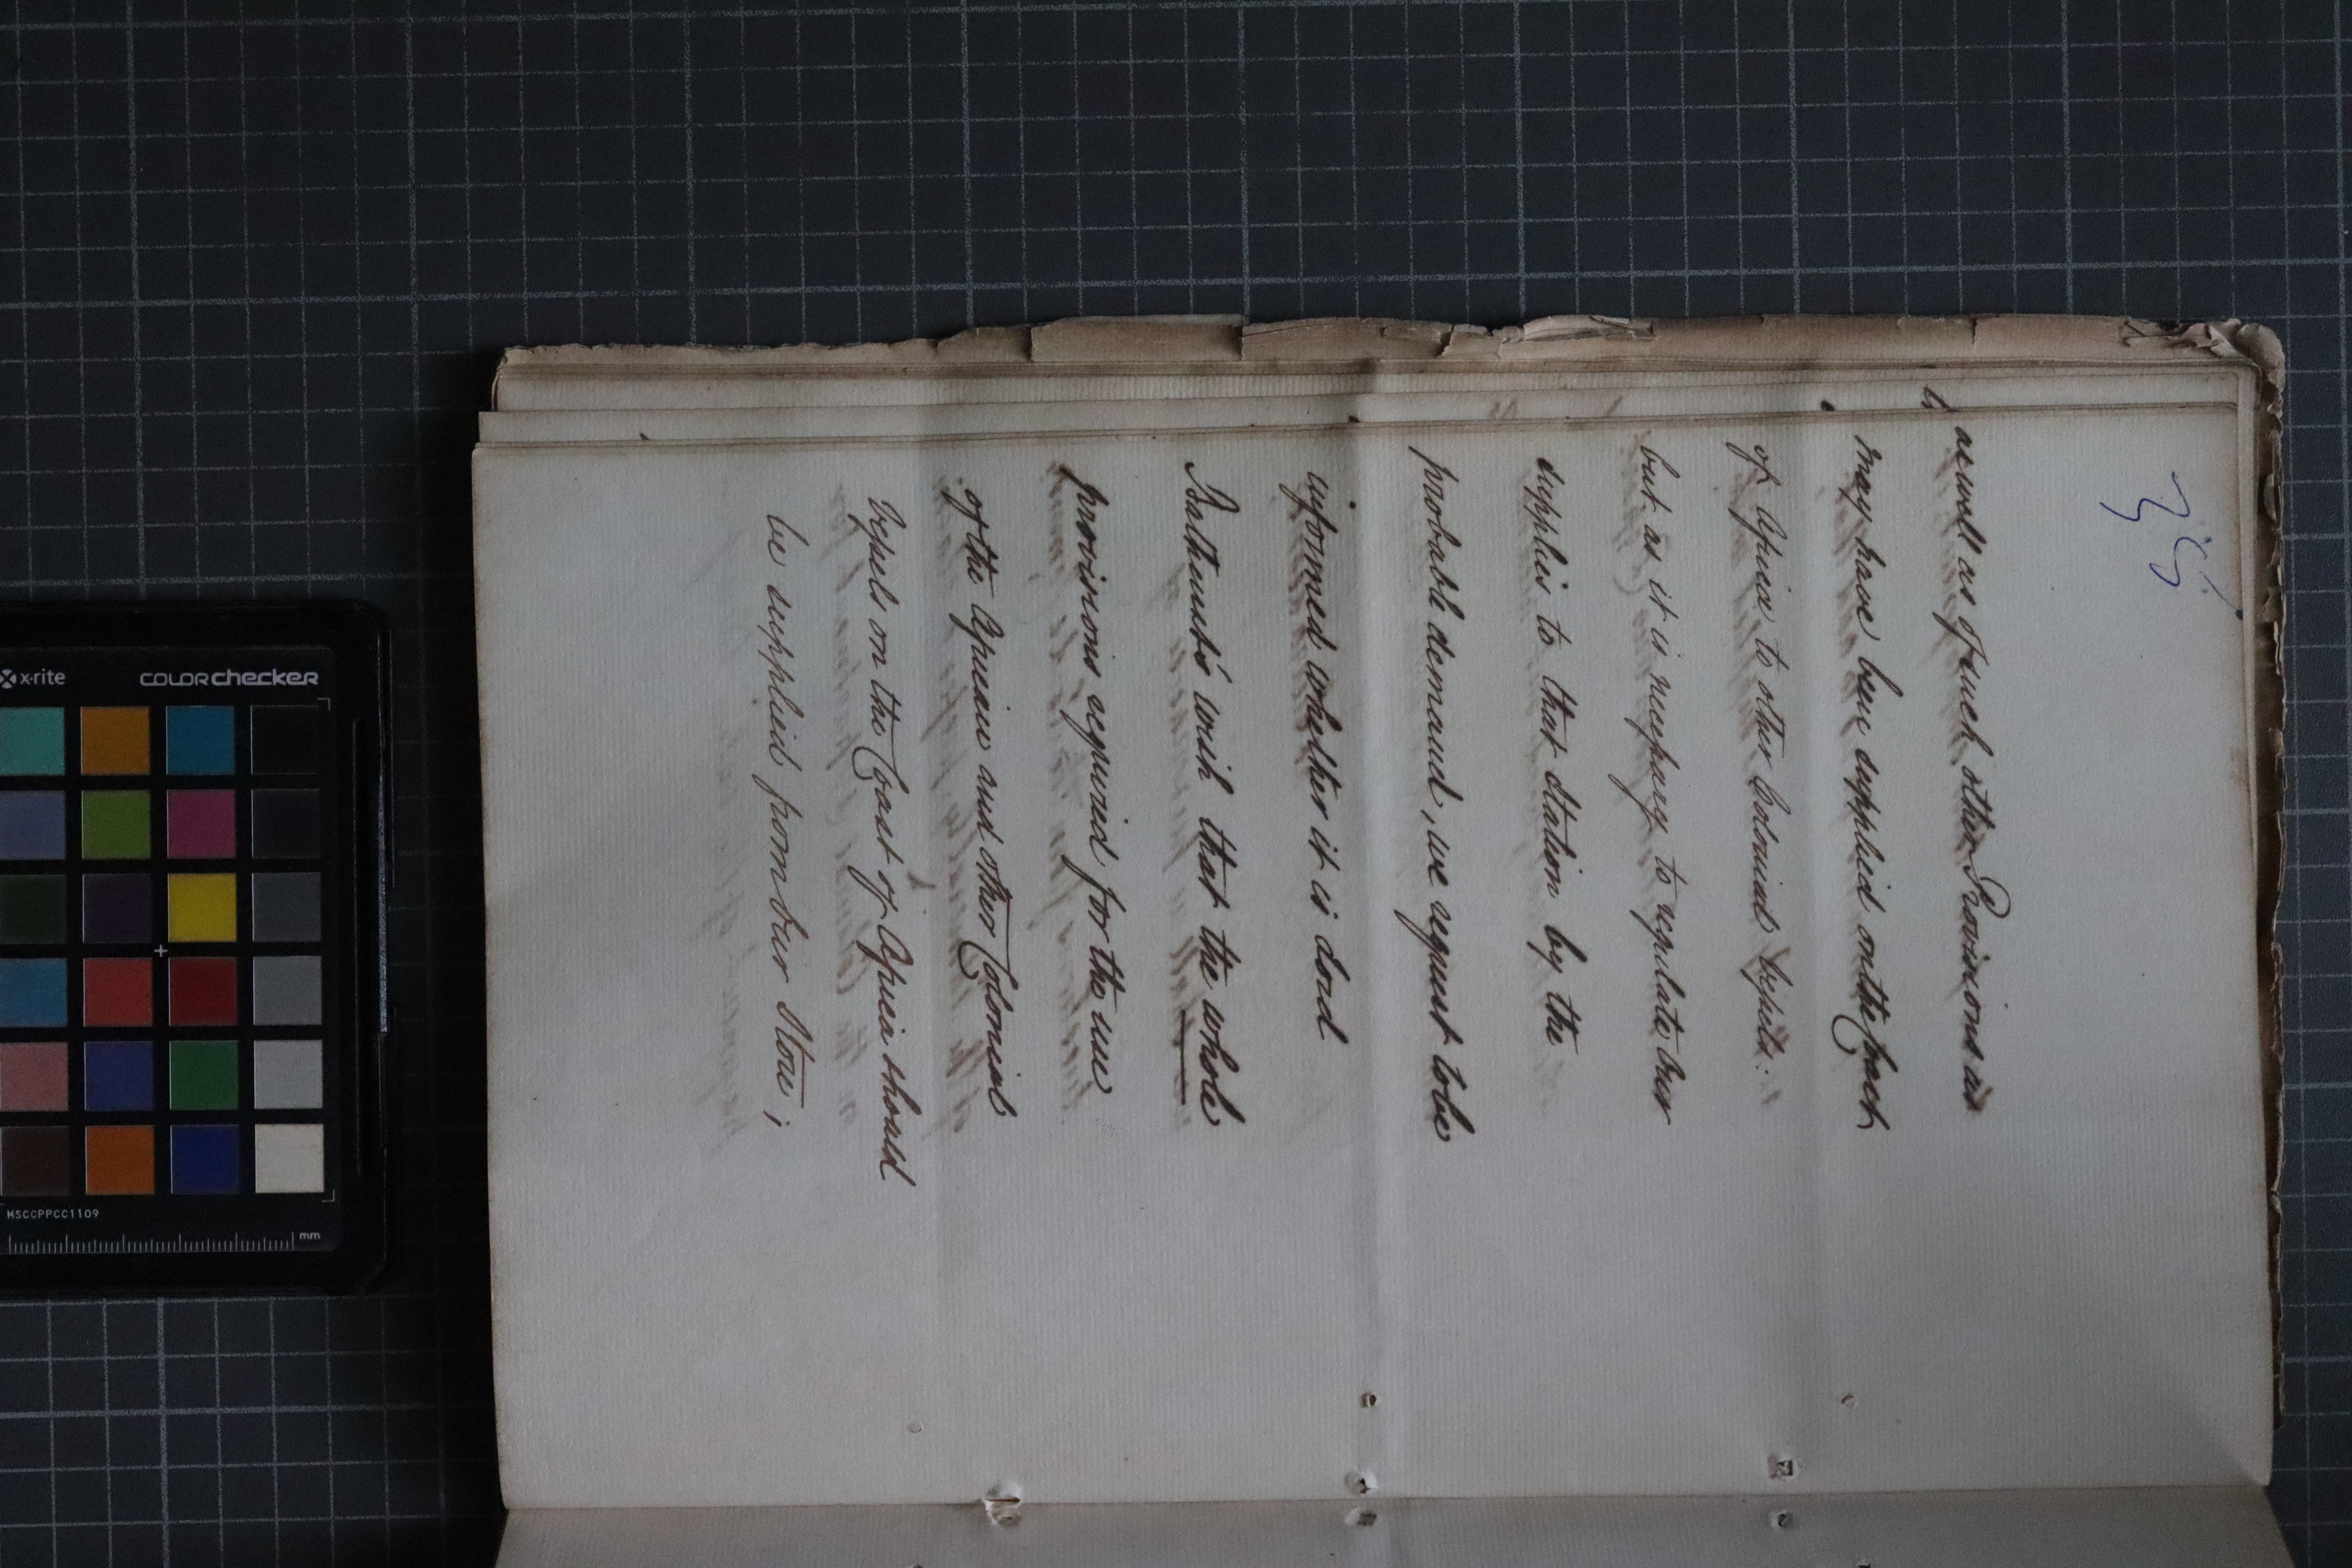 35
as well as of such other Provisions as
may have been supplied on the Coast
of Africa to other Colonial Vessels.
but as it is necessary to regulate our
supplies to that station by the
probable demand, we request to be
informed whether it is Lord
Bathurst's wish that the whole
provisions required for the use
of the African and other Colonial
Vessels on the Coast of Africa should
be supplied from our Store;
x-rite
colorchecker
MSCCPPCC1109
mm